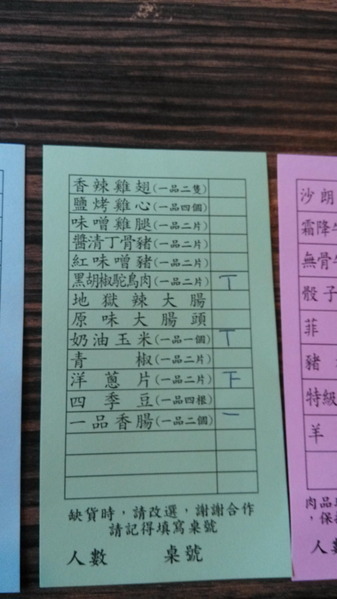 香辣雞翅(一品二隻)
鹽烤雞心(一品四個)
味噌雞腿(一品二片)
醬清丁骨豬(一品二片)
紅味噌豬(一品二片)
黑胡椒鴕鳥肉(一品二片) T
地獄辣大腸
原味大腸頭
奶油玉米(一品一個) T
青椒(一品二片)
洋蔥片(一品二片) 下
四季豆(一品四條)
一品香腸(一品二個) 一
缺貨時,請改選,謝謝合作
請記得填寫桌號
人數 桌號
沙朗
霜降牛
無骨牛
骰子
菲
豬
特級
羊
肉品
,保
人數